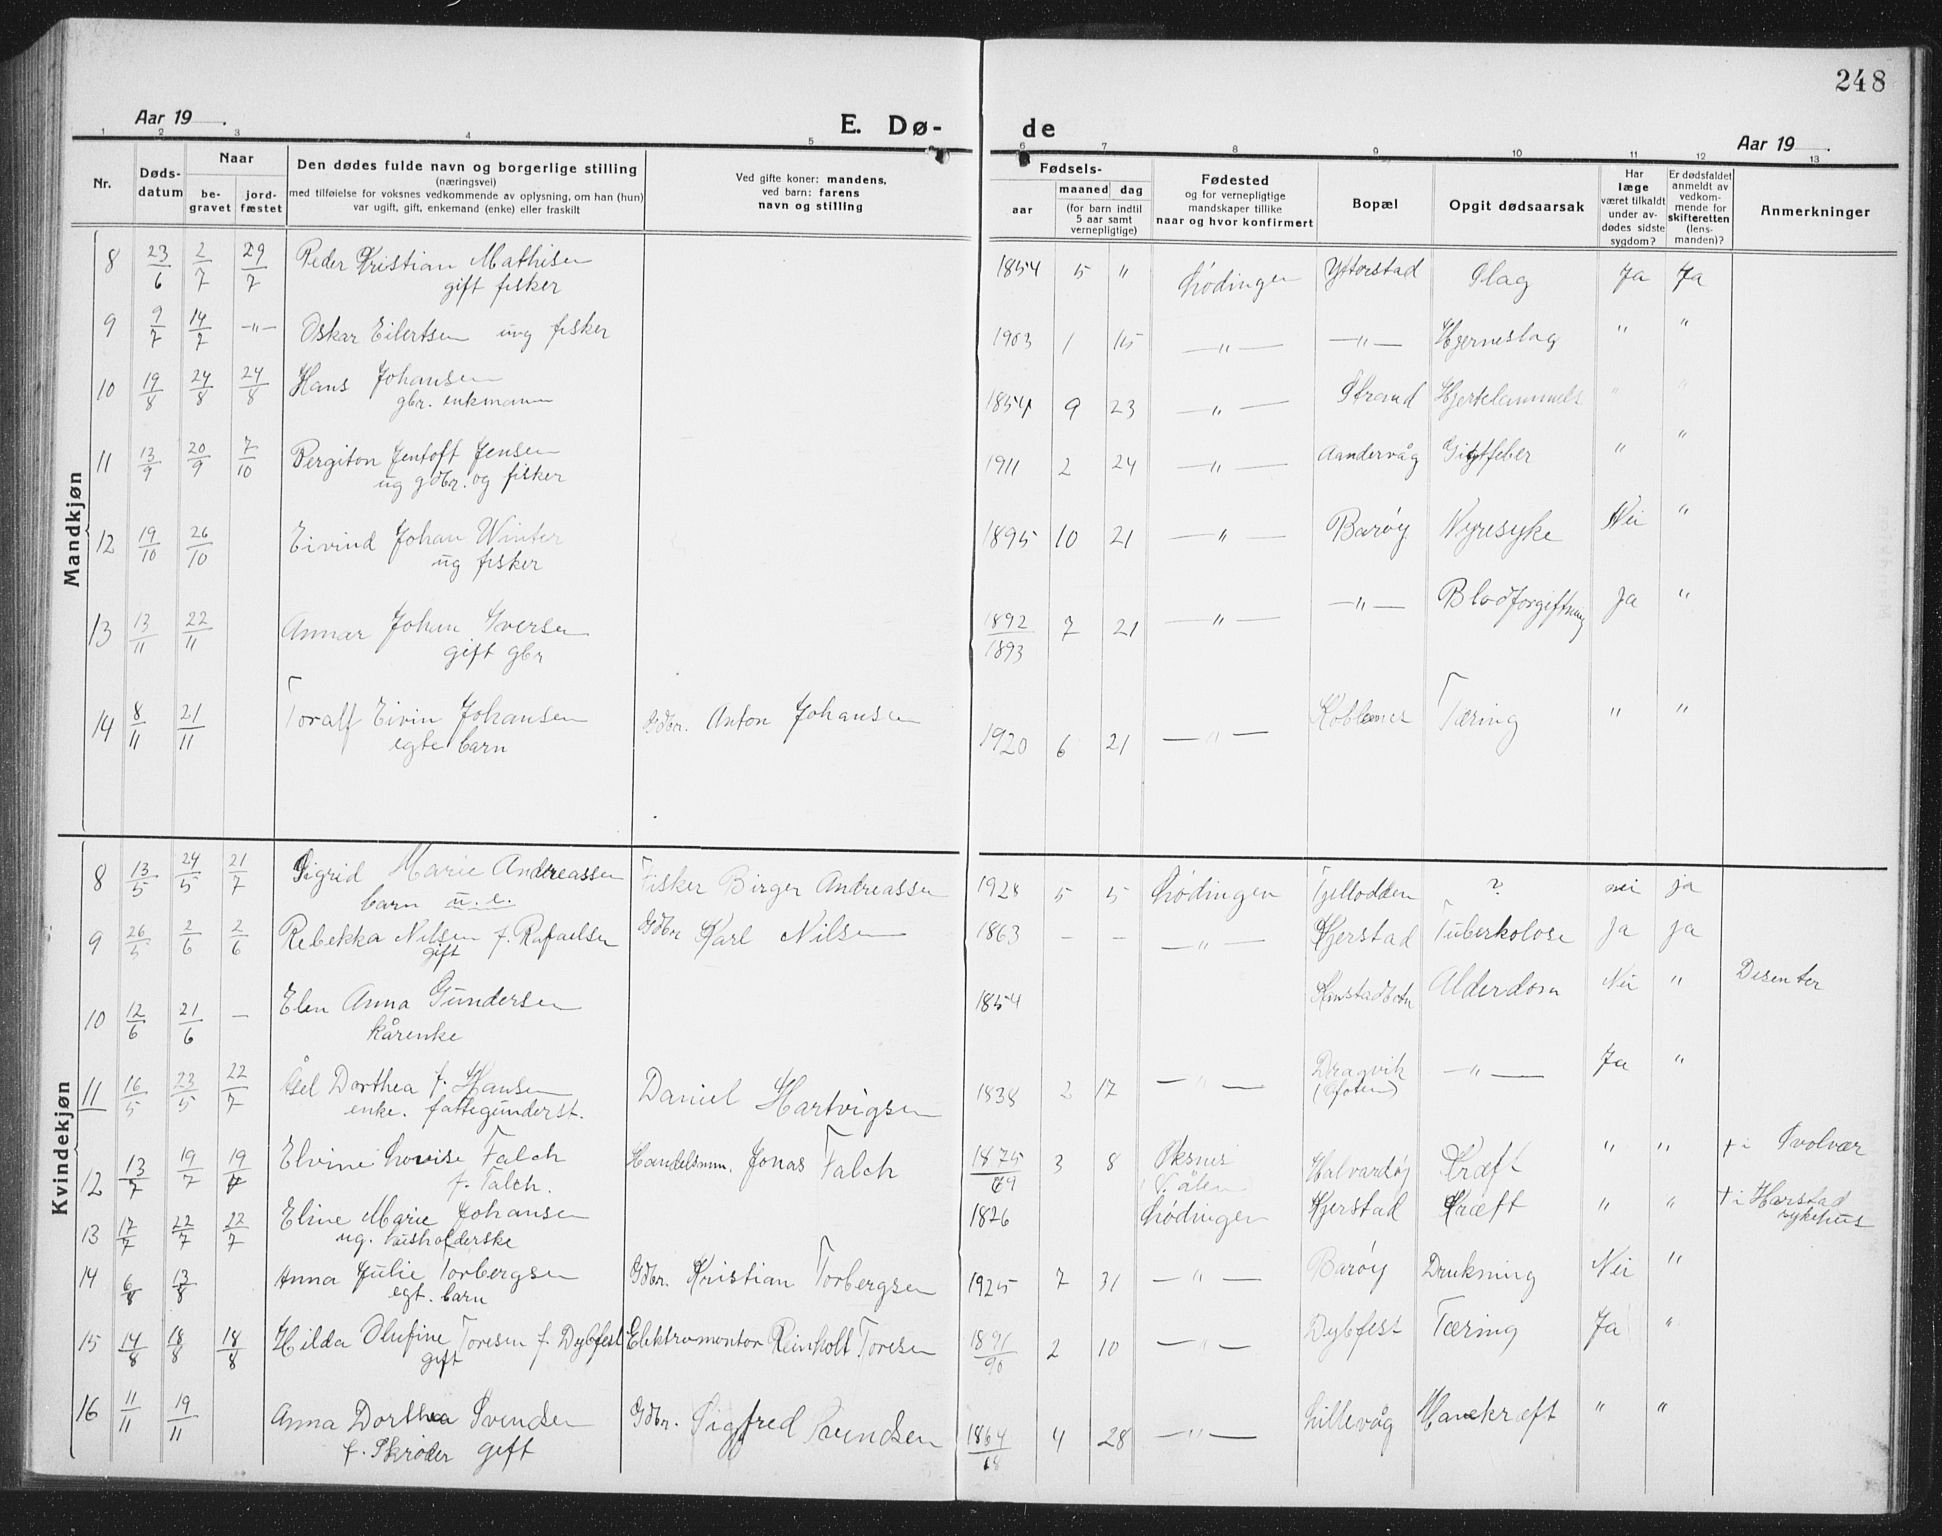 248
Aar 19 . E. Dø- de Aar 19 .
1 2 3 4 5 6 7 8 9 10 11 12 13
Nr. Døds-datum Naar be-gravet jord-fæstet Den dødes fulde navn og borgerlige stilling (næringsvei) med tilføielse for voksnes vedkommende av oplysning, om han (hun) var ugift, gift, enkemand (enke) eller fraskilt Ved gifte koner: mandens, ved barn: farens navn og stilling Fødsels- aar maaned dag (for barn indtil 5 aar samt vernepligtige) Fødested og for vernepligtige mandskaper tillike naar og hvor konfirmert Bopæl Opgit dødsaarsak Har læge været tilkaldt under av-dødes sidste sygdom? Er dødsfaldet anmeldt av vedkom-mende for skifteretten (lens-manden)? Anmerkninger
Mandkjøn
8 23/6 2/7 29/7 Peder Kristian Mathisen 1854 5 " Lødingen Ytterstad Slag Ja Ja
gift fisker
9 9/7 14/7 —"— Oskar Eilertsen ung fisker 1903 1 15 —"— —"— Hjerneslag " "
10 19/8 24/8 24/8 Hans Johansen 1854 9 23 —"— Strand Hjertelammels " "
gbr. enkmann
11 13/9 20/9 7/10 Pergiton Jentoft Jensen 1911 2 24 —"— Aandervåg Gigtfeber " "
ug gdbr. og fisker
12 19/10 26/10 Eivind Johan Winter 1895 10 21 —"— Barøy Nyresyke Nei "
ug fisker
13 13/11 22/11 Annar Johan Iversen 1892/1893 7 21 —"— —"— Blodforgiftning Ja "
gift gbr
14 8/11 21/11 Toralf Eivin Johansen Gdbr. Anton Johansen 1920 6 21 —"— Kobbenes Tæring " "
egte barn
Kvindekjøn
8 13/5 24/5 21/7 Sigrid Marie Andreassen Fisker Birger Andreassen 1928 5 5 Lødingen Tjellodden ? nei ja
barn u. e.
9 26/5 2/6 2/6 Rebekka Nilsen f. Rafaelsen Gdbr Karl Nilsen 1863 – – —"— Kjerstad Tuberkolose Ja Ja
gift
10 12/6 21/6 – Elen Anna Gundersen 1854 Alderdom Nei " Disenter
kårenke
11 16/5 23/5 22/7 Dorthea f. Hansen Daniel Hartvigsen 1838 2 17 —"— Dragvik (Ofoten) —"— Ja "
enke. fattigunderst.
12 13/7 19/7 19/7 Elvine Lovise Falch Handelsmm. Jonas Falch 1875/69 3 8 Øksnes Halvardøy Kræft " " † i Svolvær
f. Falch.
13 17/7 22/7 22/7 Eline Marie Johansen 1826 Lødingen Kjerstad Kræft " " † i Harstad sykehus
ug. husholderske
14 6/8 13/8 Anna Julie Torbergsen Gdbr. Kristian Torbergsen 1925 7 31 —"— Barøy Drukning Nei "
egt. barn
15 14/8 18/8 18/8 Hilda Olufine Toresen f. Dybfest Elektromontør Reinholt Toresen 1891/90 2 10 —"— Dybfest Tæring Ja "
gift
16 11/11 19/11 Anna Dorthea Svendsen Gdbr. Sigfred Svendsen 1864/68 4 28 —"— Lillevåg Mavekræft " "
f. Skrøder gift